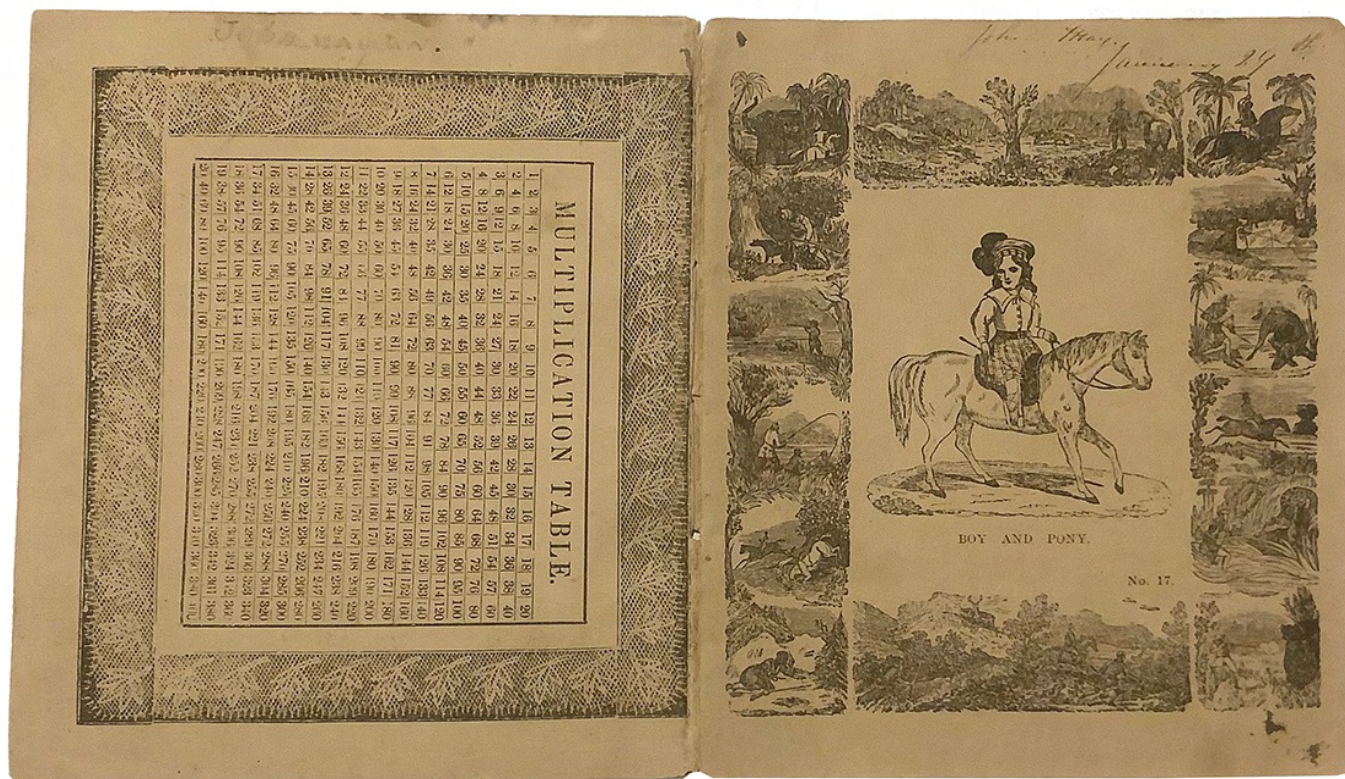 MULTIPLICATION TABLE.
1 2 3 4 5 6 7 8 9 10 11 12 13 14 15 16 17 18 19 20
2 4 6 8 10 12 14 16 18 20 22 24 26 28 30 32 34 36 38 40
3 6 9 12 15 18 21 24 27 30 33 36 39 42 45 48 51 54 57 60
4 8 12 16 20 24 28 32 36 40 44 48 52 56 60 64 68 72 76 80
5 10 15 20 25 30 35 40 45 50 55 60 65 70 75 80 85 90 95 100
6 12 18 24 30 36 42 48 54 60 66 72 78 84 90 96 102 108 114 120
7 14 21 28 35 42 49 56 63 70 77 84 91 98 105 112 119 126 133 140
8 16 24 32 40 48 56 64 72 80 88 96 104 112 120 128 136 144 152 160
9 18 27 36 45 54 63 72 81 90 99 108 117 126 135 144 153 162 171 180
10 20 30 40 50 60 70 80 90 100 110 120 130 140 150 160 170 180 190 200
11 22 33 44 55 66 77 88 99 110 121 132 143 154 165 176 187 198 209 220
12 24 36 48 60 72 84 96 108 120 132 144 156 168 180 192 204 216 228 240
13 26 39 52 65 78 91 104 117 130 143 156 169 182 195 208 221 234 247 260
14 28 42 56 70 84 98 112 126 140 154 168 182 196 210 224 238 252 266 280
15 30 45 60 75 90 105 120 135 150 165 180 195 210 225 240 255 270 285 300
16 32 48 64 80 96 112 128 144 160 176 192 208 224 240 256 272 288 304 320
17 34 51 68 85 102 119 136 153 170 187 204 221 238 255 272 289 306 323 340
18 36 54 72 90 108 126 144 162 180 198 216 234 252 270 288 306 324 342 360
19 38 57 76 95 114 133 152 171 190 209 228 247 266 285 304 323 342 361 380
20 40 60 80 100 120 140 160 180 200 220 240 260 280 300 320 340 360 380 400
John May.
January 29 th
BOY AND PONY.
No. 17.